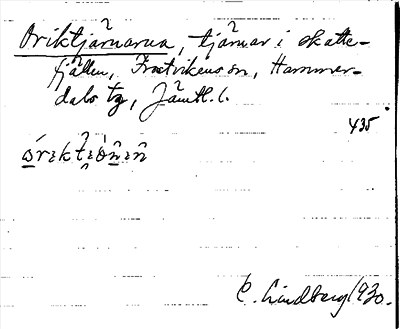 Oriktjärnarna, tjärnar i skatte-
fjällen, Frostvikens sn, Hammer-
dals tg, Jämtl. l.
435
C. Lindberg 1930.